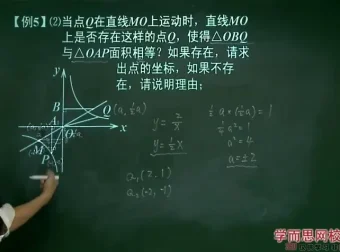 【例5】⑵当点Q在直线MO上运动时，直线MO
上是否存在这样的点Q，使得△OBQ
与△OAP面积相等？如果存在，请求
出点的坐标，如果不存
在，请说明理由；
y
B
Q (a, ½a)
A
O
x
M
P
y = 2/x
y = ½x
½a·(½a) = 1
a² = 1
a² = 4
a = ±2
Q₁(2, 1)
Q₂(-2, -1)
学而思网校